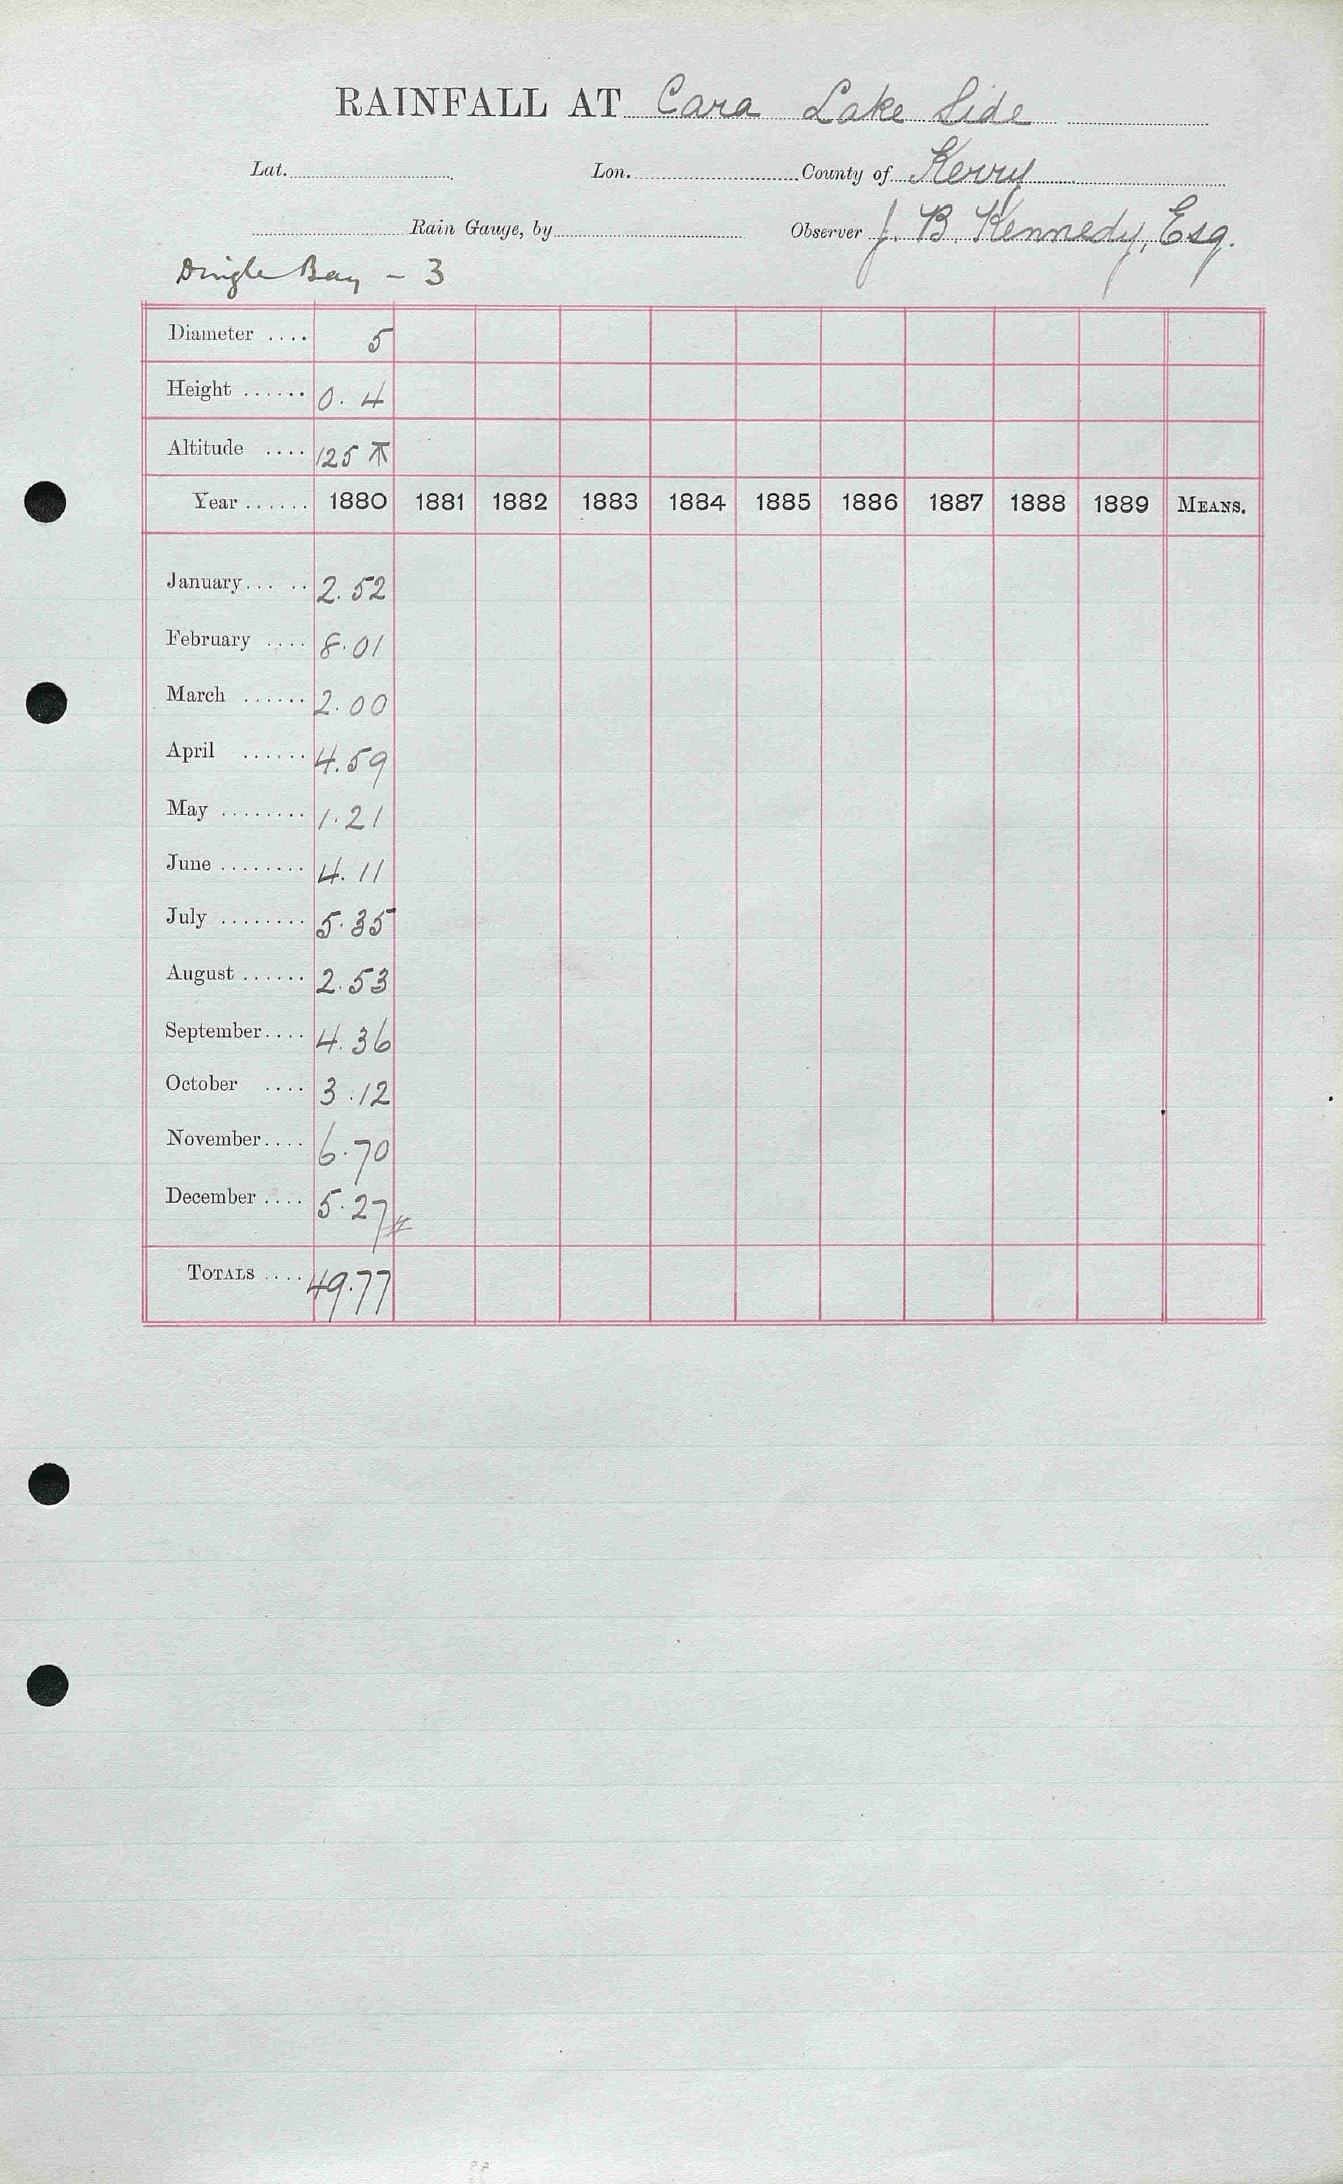 RAINFALL AT Cara Lake Side
Lat. Lon. County of Kerry
Rain Gauge, by Observer J. B. Kennedy, Esq.
Dingle Bay - 3
Diameter .... 5
Height ...... 0.4
Altitude .... 125
Year ...... 1880 1881 1882 1883 1884 1885 1886 1887 1888 1889 MEANS.
January ..... 2.52
February .... 8.01
March ...... 2.00
April ...... 4.59
May ........ 1.21
June ........ 4.11
July ........ 5.35
August ...... 2.53
September .... 4.36
October .... 3.12
November .... 6.70
December .... 5.27
TOTALS .... 49.77